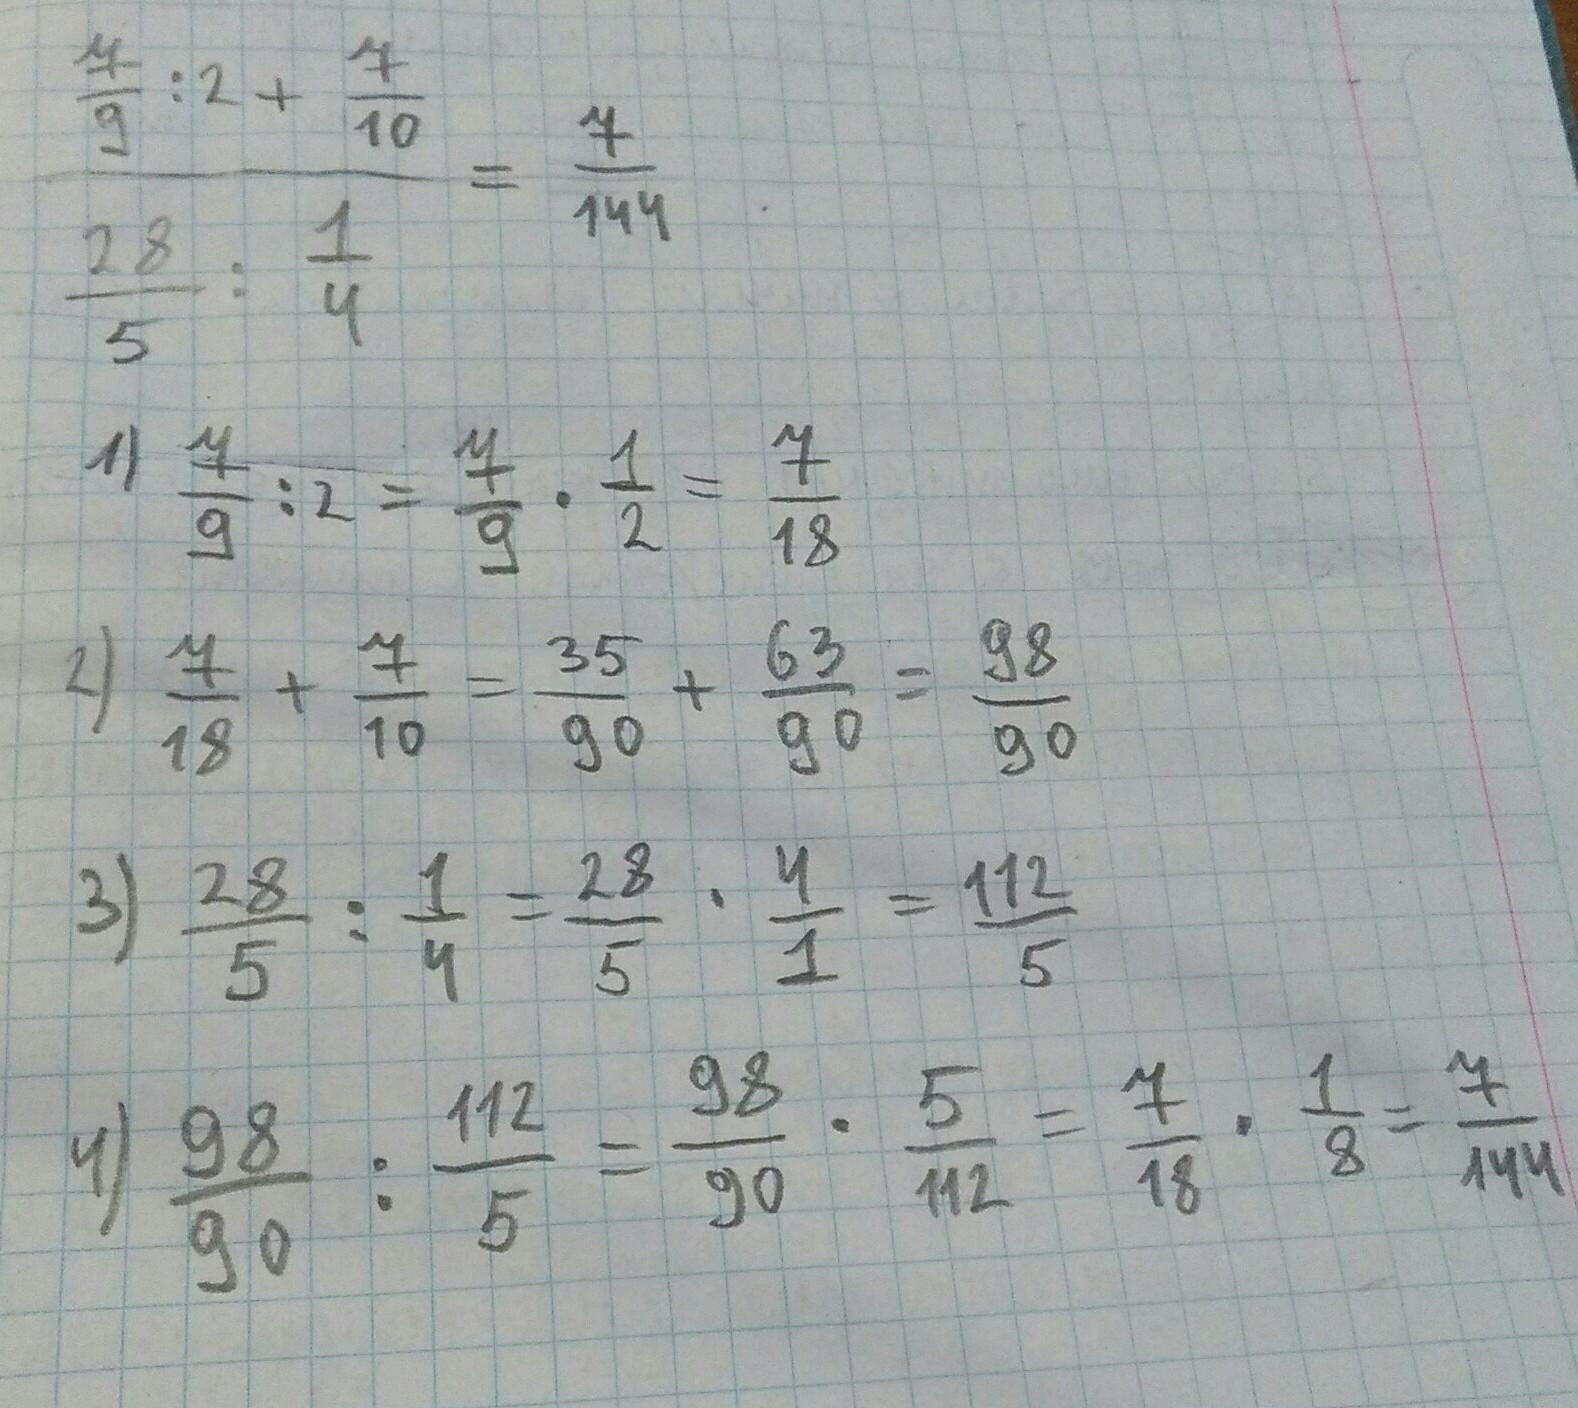 7/9 : 2 + 7/10
―――――― = 7/144
28/5 : 1/4
1) 7/9 : 2 = 7/9 · 1/2 = 7/18
2) 7/18 + 7/10 = 35/90 + 63/90 = 98/90
3) 28/5 : 1/4 = 28/5 · 4/1 = 112/5
4) 98/90 : 112/5 = 98/90 · 5/112 = 7/18 · 1/8 = 7/144